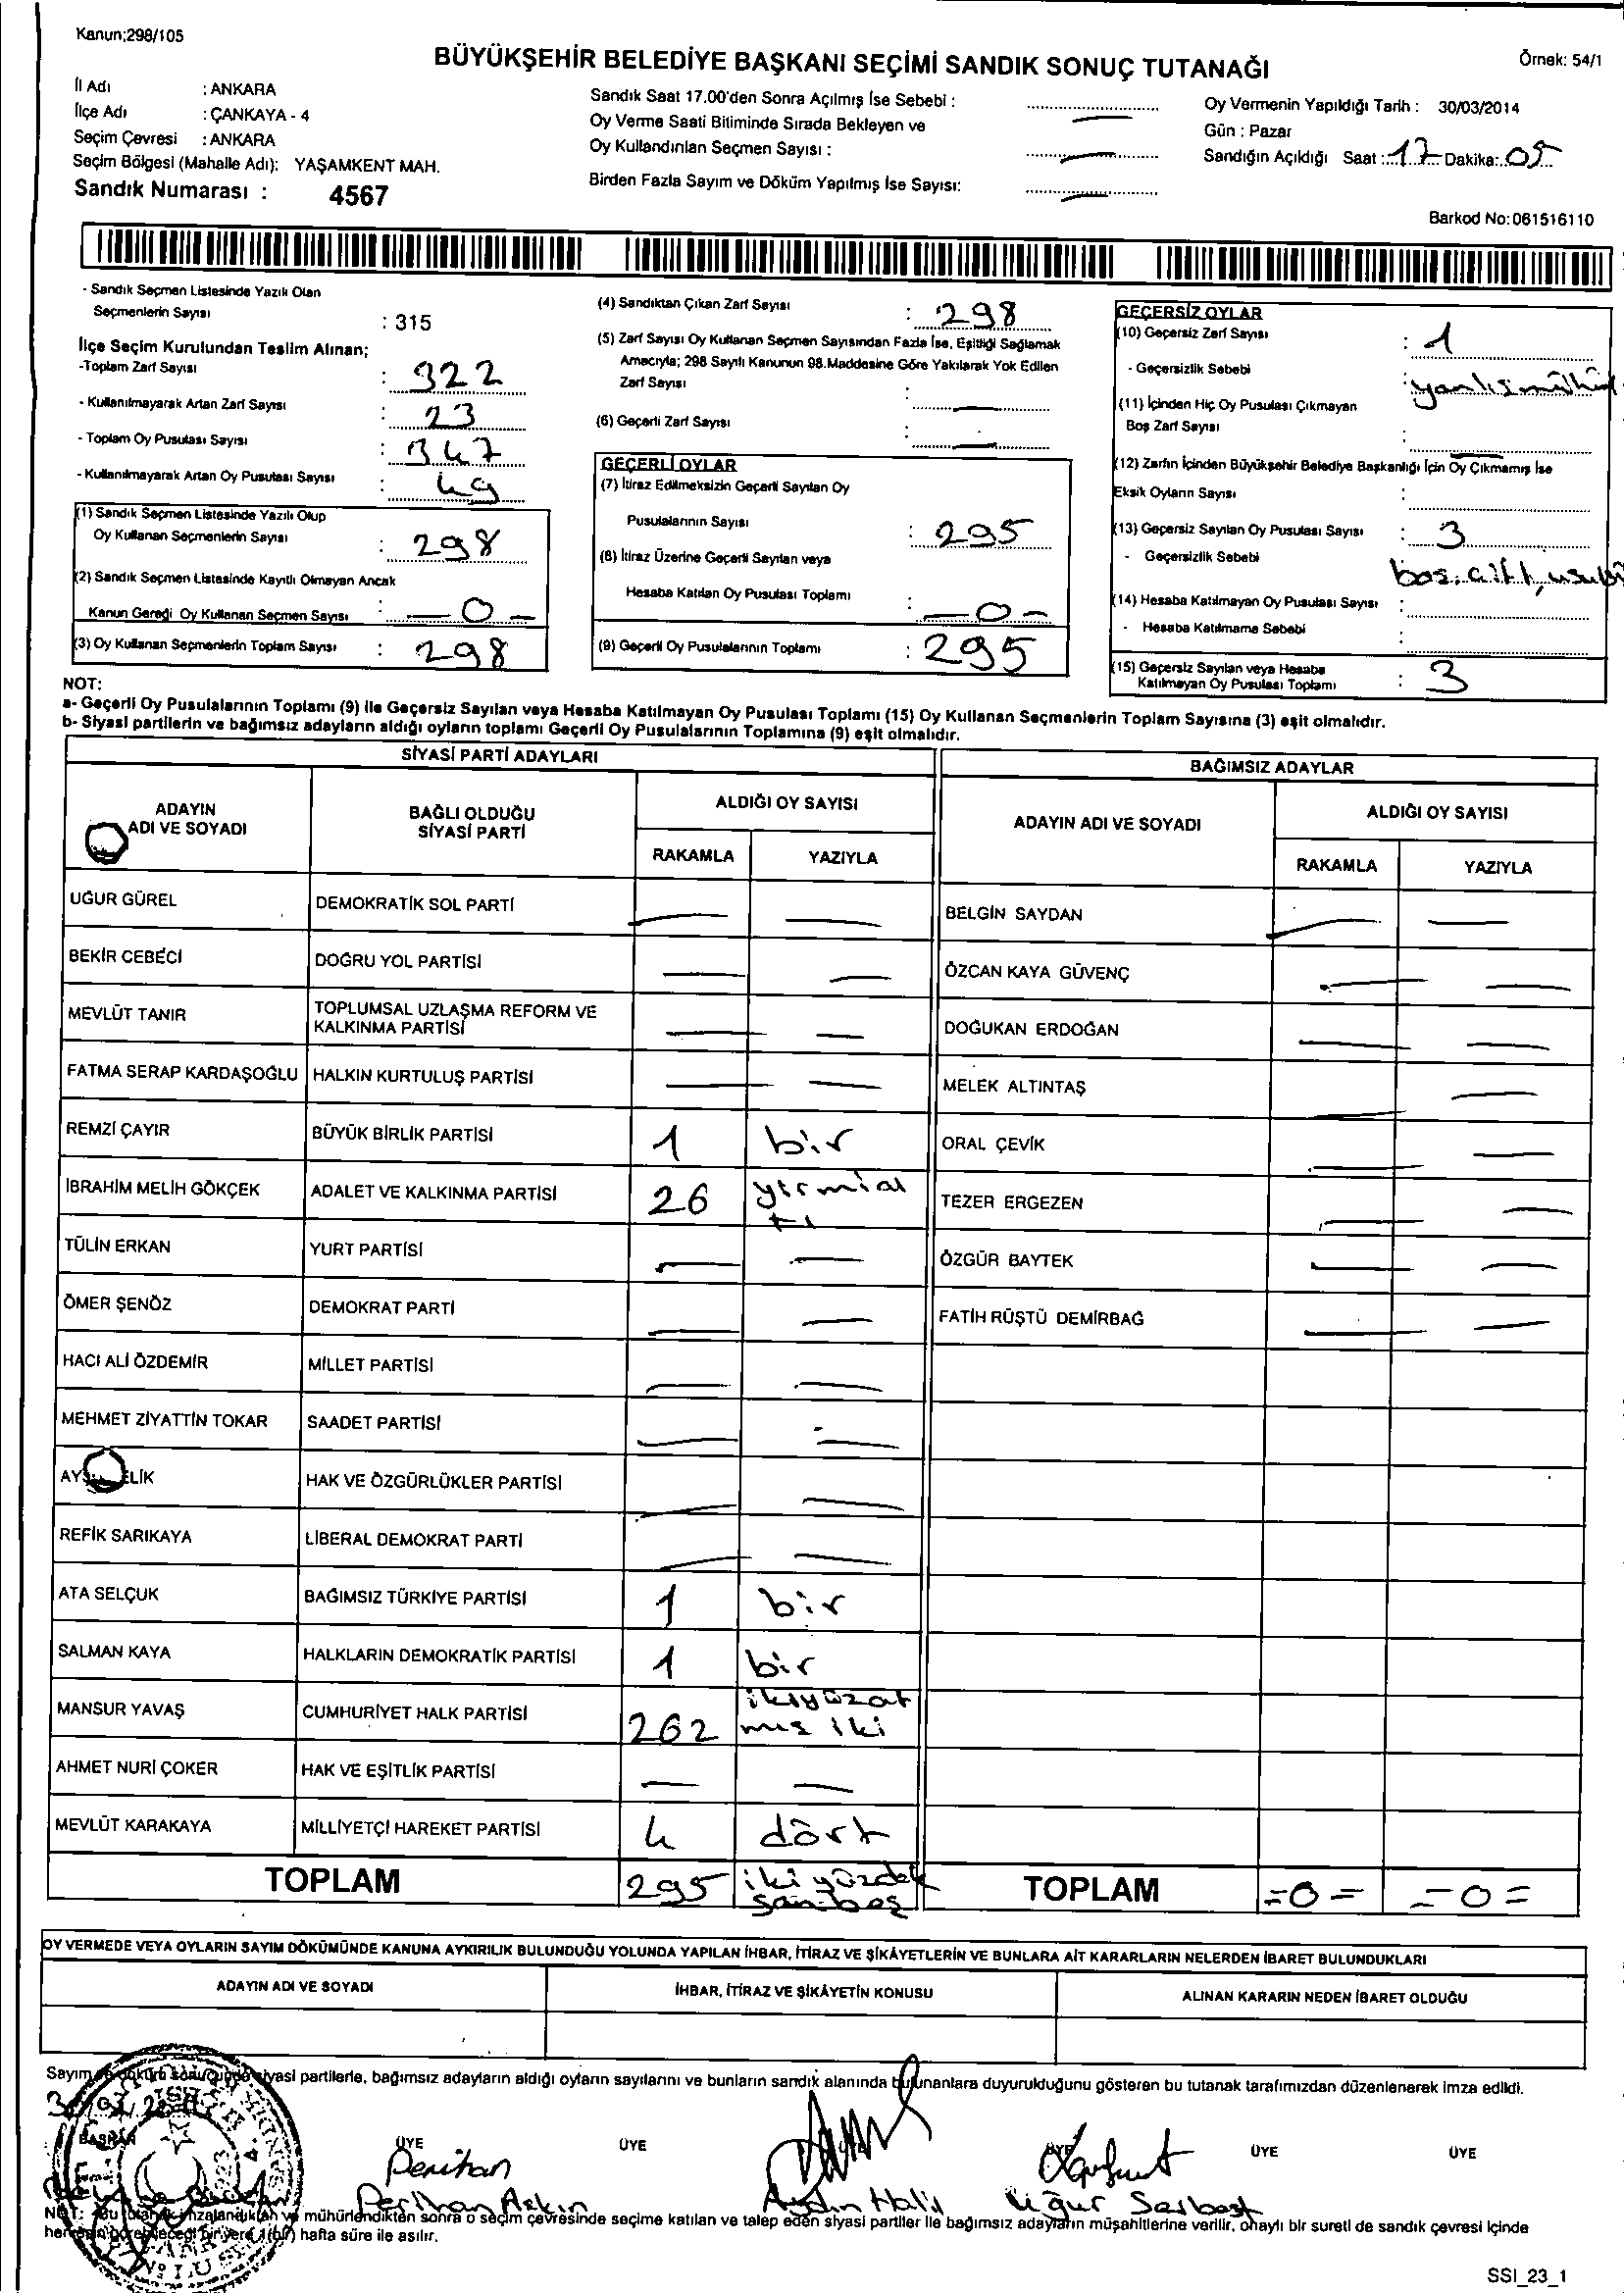 Kanun;298/105
BÜYÜKŞEHİR BELEDİYE BAŞKANI SEÇİMİ SANDIK SONUÇ TUTANAĞI
Örnek: 54/1
İl Adı : ANKARA
İlçe Adı : ÇANKAYA - 4
Seçim Çevresi : ANKARA
Seçim Bölgesi (Mahalle Adı); YAŞAMKENT MAH.
Sandık Numarası : 4567
Sandık Saat 17.00'den Sonra Açılmış İse Sebebi : —
Oy Verme Saati Bitiminde Sırada Bekleyen ve
Oy Kullandırılan Seçmen Sayısı : —
Birden Fazla Sayım ve Döküm Yapılmış İse Sayısı: —
Oy Vermenin Yapıldığı Tarih : 30/03/2014
Gün : Pazar
Sandığın Açıldığı Saat : 17 Dakika: 05
Barkod No: 061516110
- Sandık Seçmen Listesinde Yazılı Olan
Seçmenlerin Sayısı : 315
İlçe Seçim Kurulundan Teslim Alınan;
-Toplam Zarf Sayısı : 322
- Kullanılmayarak Artan Zarf Sayısı : 23
- Toplam Oy Pusulası Sayısı : 347
- Kullanılmayarak Artan Oy Pusulası Sayısı : 49
(1) Sandık Seçmen Listesinde Yazılı Olup
Oy Kullanan Seçmenlerin Sayısı : 298
(2) Sandık Seçmen Listesinde Kayıtlı Olmayan Ancak
Kanun Gereği Oy Kullanan Seçmen Sayısı : —0—
(3) Oy Kullanan Seçmenlerin Toplam Sayısı : 298
(4) Sandıktan Çıkan Zarf Sayısı : 298
(5) Zarf Sayısı Oy Kullanan Seçmen Sayısından Fazla İse, Eşitliği Sağlamak
Amacıyla; 298 Sayılı Kanunun 98.Maddesine Göre Yakılarak Yok Edilen
Zarf Sayısı : —
(6) Geçerli Zarf Sayısı : —
GEÇERLİ OYLAR
(7) İtiraz Edilmeksizin Geçerli Sayılan Oy
Pusulalarının Sayısı : 295
(8) İtiraz Üzerine Geçerli Sayılan veya
Hesaba Katılan Oy Pusulası Toplamı : —0—
(9) Geçerli Oy Pusulalarının Toplamı : 295
GEÇERSİZ OYLAR
(10) Geçersiz Zarf Sayısı : 1
- Geçersizlik Sebebi : yanlış mühür
(11) İçinden Hiç Oy Pusulası Çıkmayan
Boş Zarf Sayısı : —
(12) Zarfın İçinden Büyükşehir Belediye Başkanlığı İçin Oy Çıkmamış İse
Eksik Oyların Sayısı :
(13) Geçersiz Sayılan Oy Pusulası Sayısı : 3
- Geçersizlik Sebebi boş, çift,
(14) Hesaba Katılmayan Oy Pusulası Sayısı :
- Hesaba Katılmama Sebebi :
(15) Geçersiz Sayılan veya Hesaba
Katılmayan Oy Pusulası Toplamı : 3
NOT:
a- Geçerli Oy Pusulalarının Toplamı (9) ile Geçersiz Sayılan veya Hesaba Katılmayan Oy Pusulası Toplamı (15) Oy Kullanan Seçmenlerin Toplam Sayısına (3) eşit olmalıdır.
b- Siyasi partilerin ve bağımsız adayların aldığı oyların toplamı Geçerli Oy Pusulalarının Toplamına (9) eşit olmalıdır.
SİYASİ PARTİ ADAYLARI
ADAYIN ADI VE SOYADI BAĞLI OLDUĞU SİYASİ PARTİ ALDIĞI OY SAYISI
RAKAMLA YAZIYLA
UĞUR GÜREL DEMOKRATİK SOL PARTİ — —
BEKİR CEBECİ DOĞRU YOL PARTİSİ — —
MEVLÜT TANIR TOPLUMSAL UZLAŞMA REFORM VE KALKINMA PARTİSİ — —
FATMA SERAP KARDAŞOĞLU HALKIN KURTULUŞ PARTİSİ — —
REMZİ ÇAYIR BÜYÜK BİRLİK PARTİSİ 1 bir
İBRAHİM MELİH GÖKÇEK ADALET VE KALKINMA PARTİSİ 26 yirmialtı
TÜLİN ERKAN YURT PARTİSİ — —
ÖMER ŞENÖZ DEMOKRAT PARTİ — —
HACI ALİ ÖZDEMİR MİLLET PARTİSİ — —
MEHMET ZİYATTİN TOKAR SAADET PARTİSİ — —
HAK VE ÖZGÜRLÜKLER PARTİSİ — —
REFİK SARIKAYA LİBERAL DEMOKRAT PARTİ — —
ATA SELÇUK BAĞIMSIZ TÜRKİYE PARTİSİ 1 bir
SALMAN KAYA HALKLARIN DEMOKRATİK PARTİSİ 1 bir
MANSUR YAVAŞ CUMHURİYET HALK PARTİSİ 262 ikiyüzatmış iki
AHMET NURİ ÇOKER HAK VE EŞİTLİK PARTİSİ — —
MEVLÜT KARAKAYA MİLLİYETÇİ HAREKET PARTİSİ 4 dört
TOPLAM 295 ikiyüzdoksanbeş
BAĞIMSIZ ADAYLAR
ADAYIN ADI VE SOYADI ALDIĞI OY SAYISI
RAKAMLA YAZIYLA
BELGİN SAYDAN — —
ÖZCAN KAYA GÜVENÇ — —
DOĞUKAN ERDOĞAN — —
MELEK ALTINTAŞ — —
ORAL ÇEVİK — —
TEZER ERGEZEN — —
ÖZGÜR BAYTEK — —
FATİH RÜŞTÜ DEMİRBAĞ — —
TOPLAM =0= =0=
OY VERMEDE VEYA OYLARIN SAYIM DÖKÜMÜNDE KANUNA AYKIRILIK BULUNDUĞU YOLUNDA YAPILAN İHBAR, İTİRAZ VE ŞİKÂYETLERİN VE BUNLARA AİT KARARLARIN NELERDEN İBARET BULUNDUKLARI
ADAYIN ADI VE SOYADI İHBAR, İTİRAZ VE ŞİKÂYETİN KONUSU ALINAN KARARIN NEDEN İBARET OLDUĞU
Sayım siyasi partilerle, bağımsız adayların aldığı oyların sayılarını ve bunların sandık alanında bulunanlara duyurulduğunu gösteren bu tutanak tarafımızdan düzenlenerek imza edildi.
BAŞKAN ÜYE ÜYE ÜYE ÜYE ÜYE ÜYE
Perihan
Perihan Aşkın Aydın Halil Uğur Serbest
NOT: Bu tutanak imzalandıktan ve mühürlendikten sonra o seçim çevresinde seçime katılan ve talep eden siyasi partiler ile bağımsız adayların müşahitlerine verilir, onaylı bir sureti de sandık çevresi içinde
herkesin görebileceği bir yere 1(bir) hafta süre ile asılır.
SSI_23_1